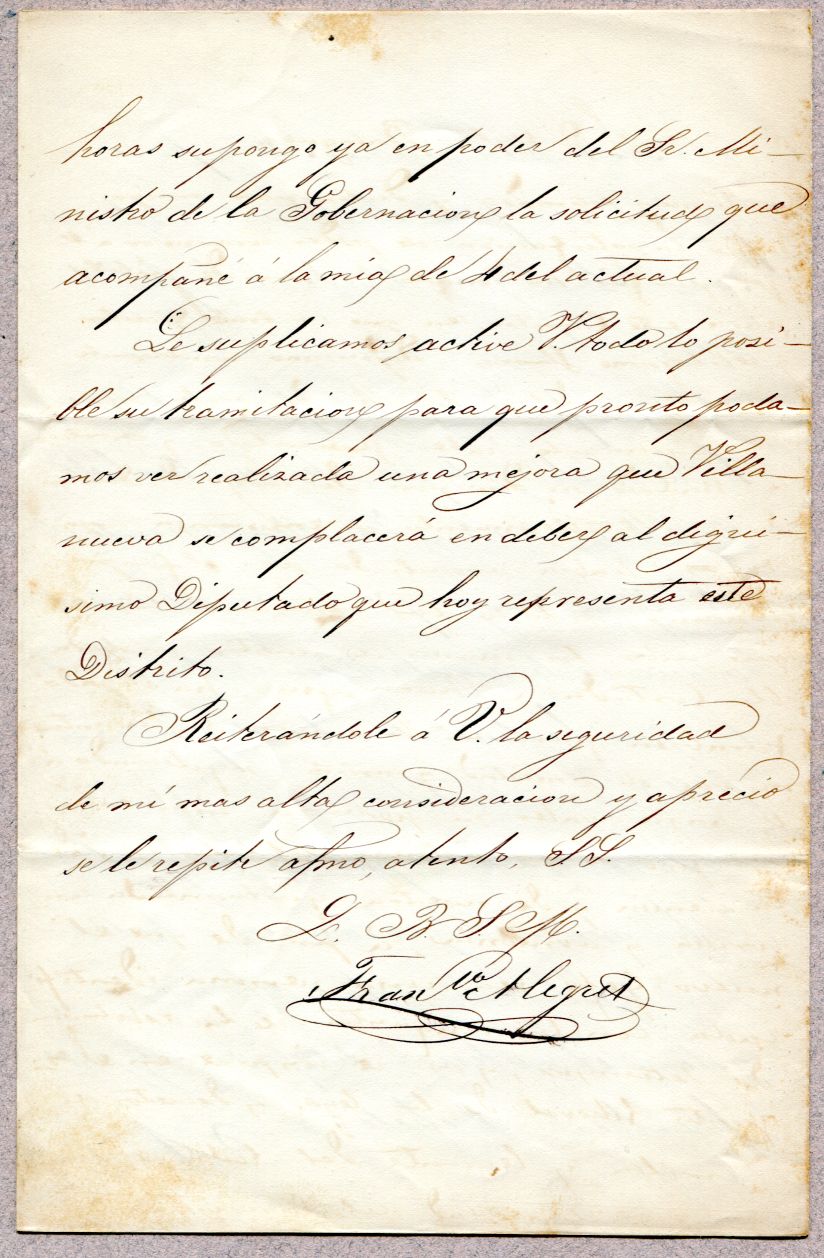 horas supongo ya en poder del Sr. Mi-
nistro de la Gobernacion la solicitud que
acompañé á la mia de 4 del actual.
Le suplicamos active V. todo lo posi-
ble su tramitacion para que pronto poda-
mos ver realizada una mejora que Villa-
nueva se complacerá en deber al digní-
simo Diputado que hoy representa este
Distrito.
Reiterándole á V. la seguridad
de mi mas alta consideracion y aprecio
se le repite afmo, atento, S.S.
Q. B. S. M.
Fran.co Alegret